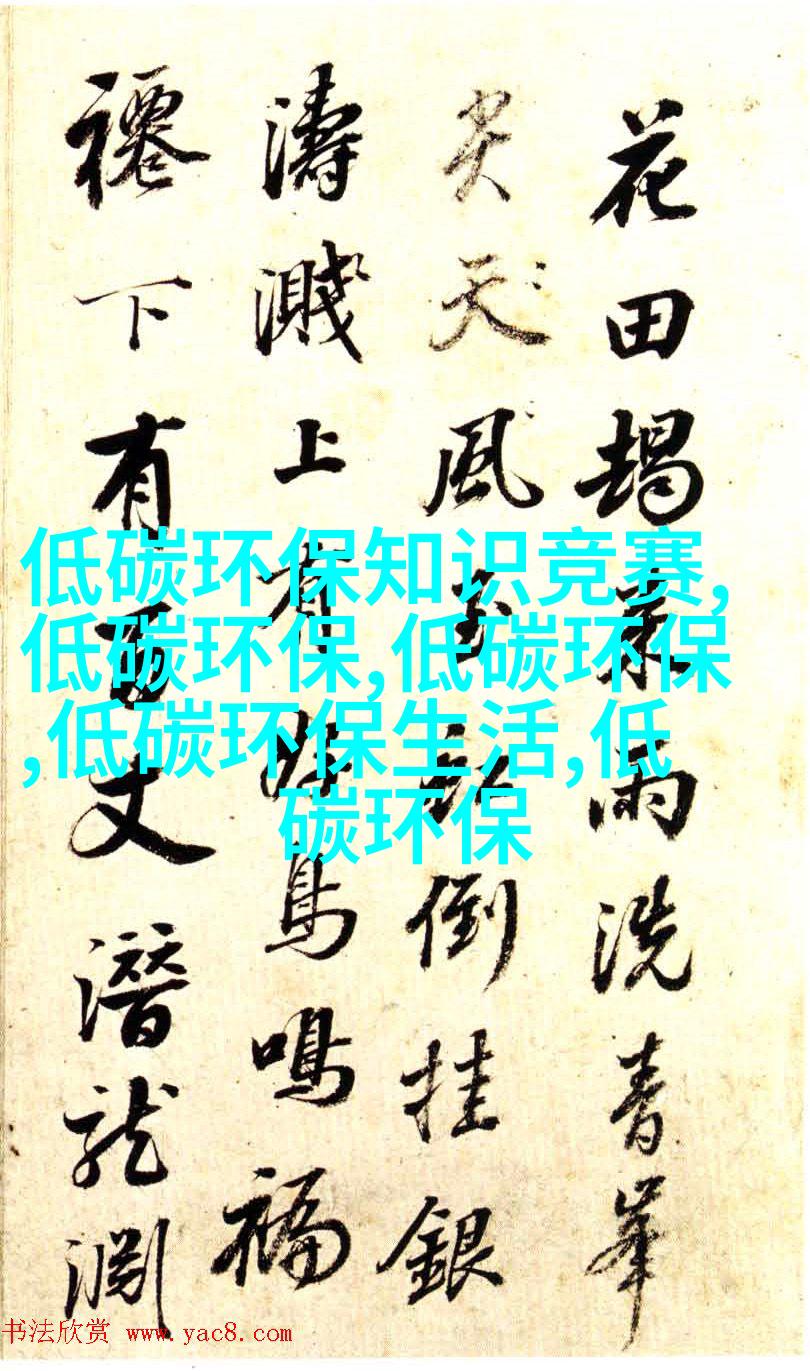 花田雨洗青峯
天風倒挂銀
濤濺上有好鳥鳴福
下有百丈潛龍渊
低碳环保知识竞赛,
低碳环保,低碳环保
,低碳环保生活,低
碳环保
书法欣赏 www.yac8.com